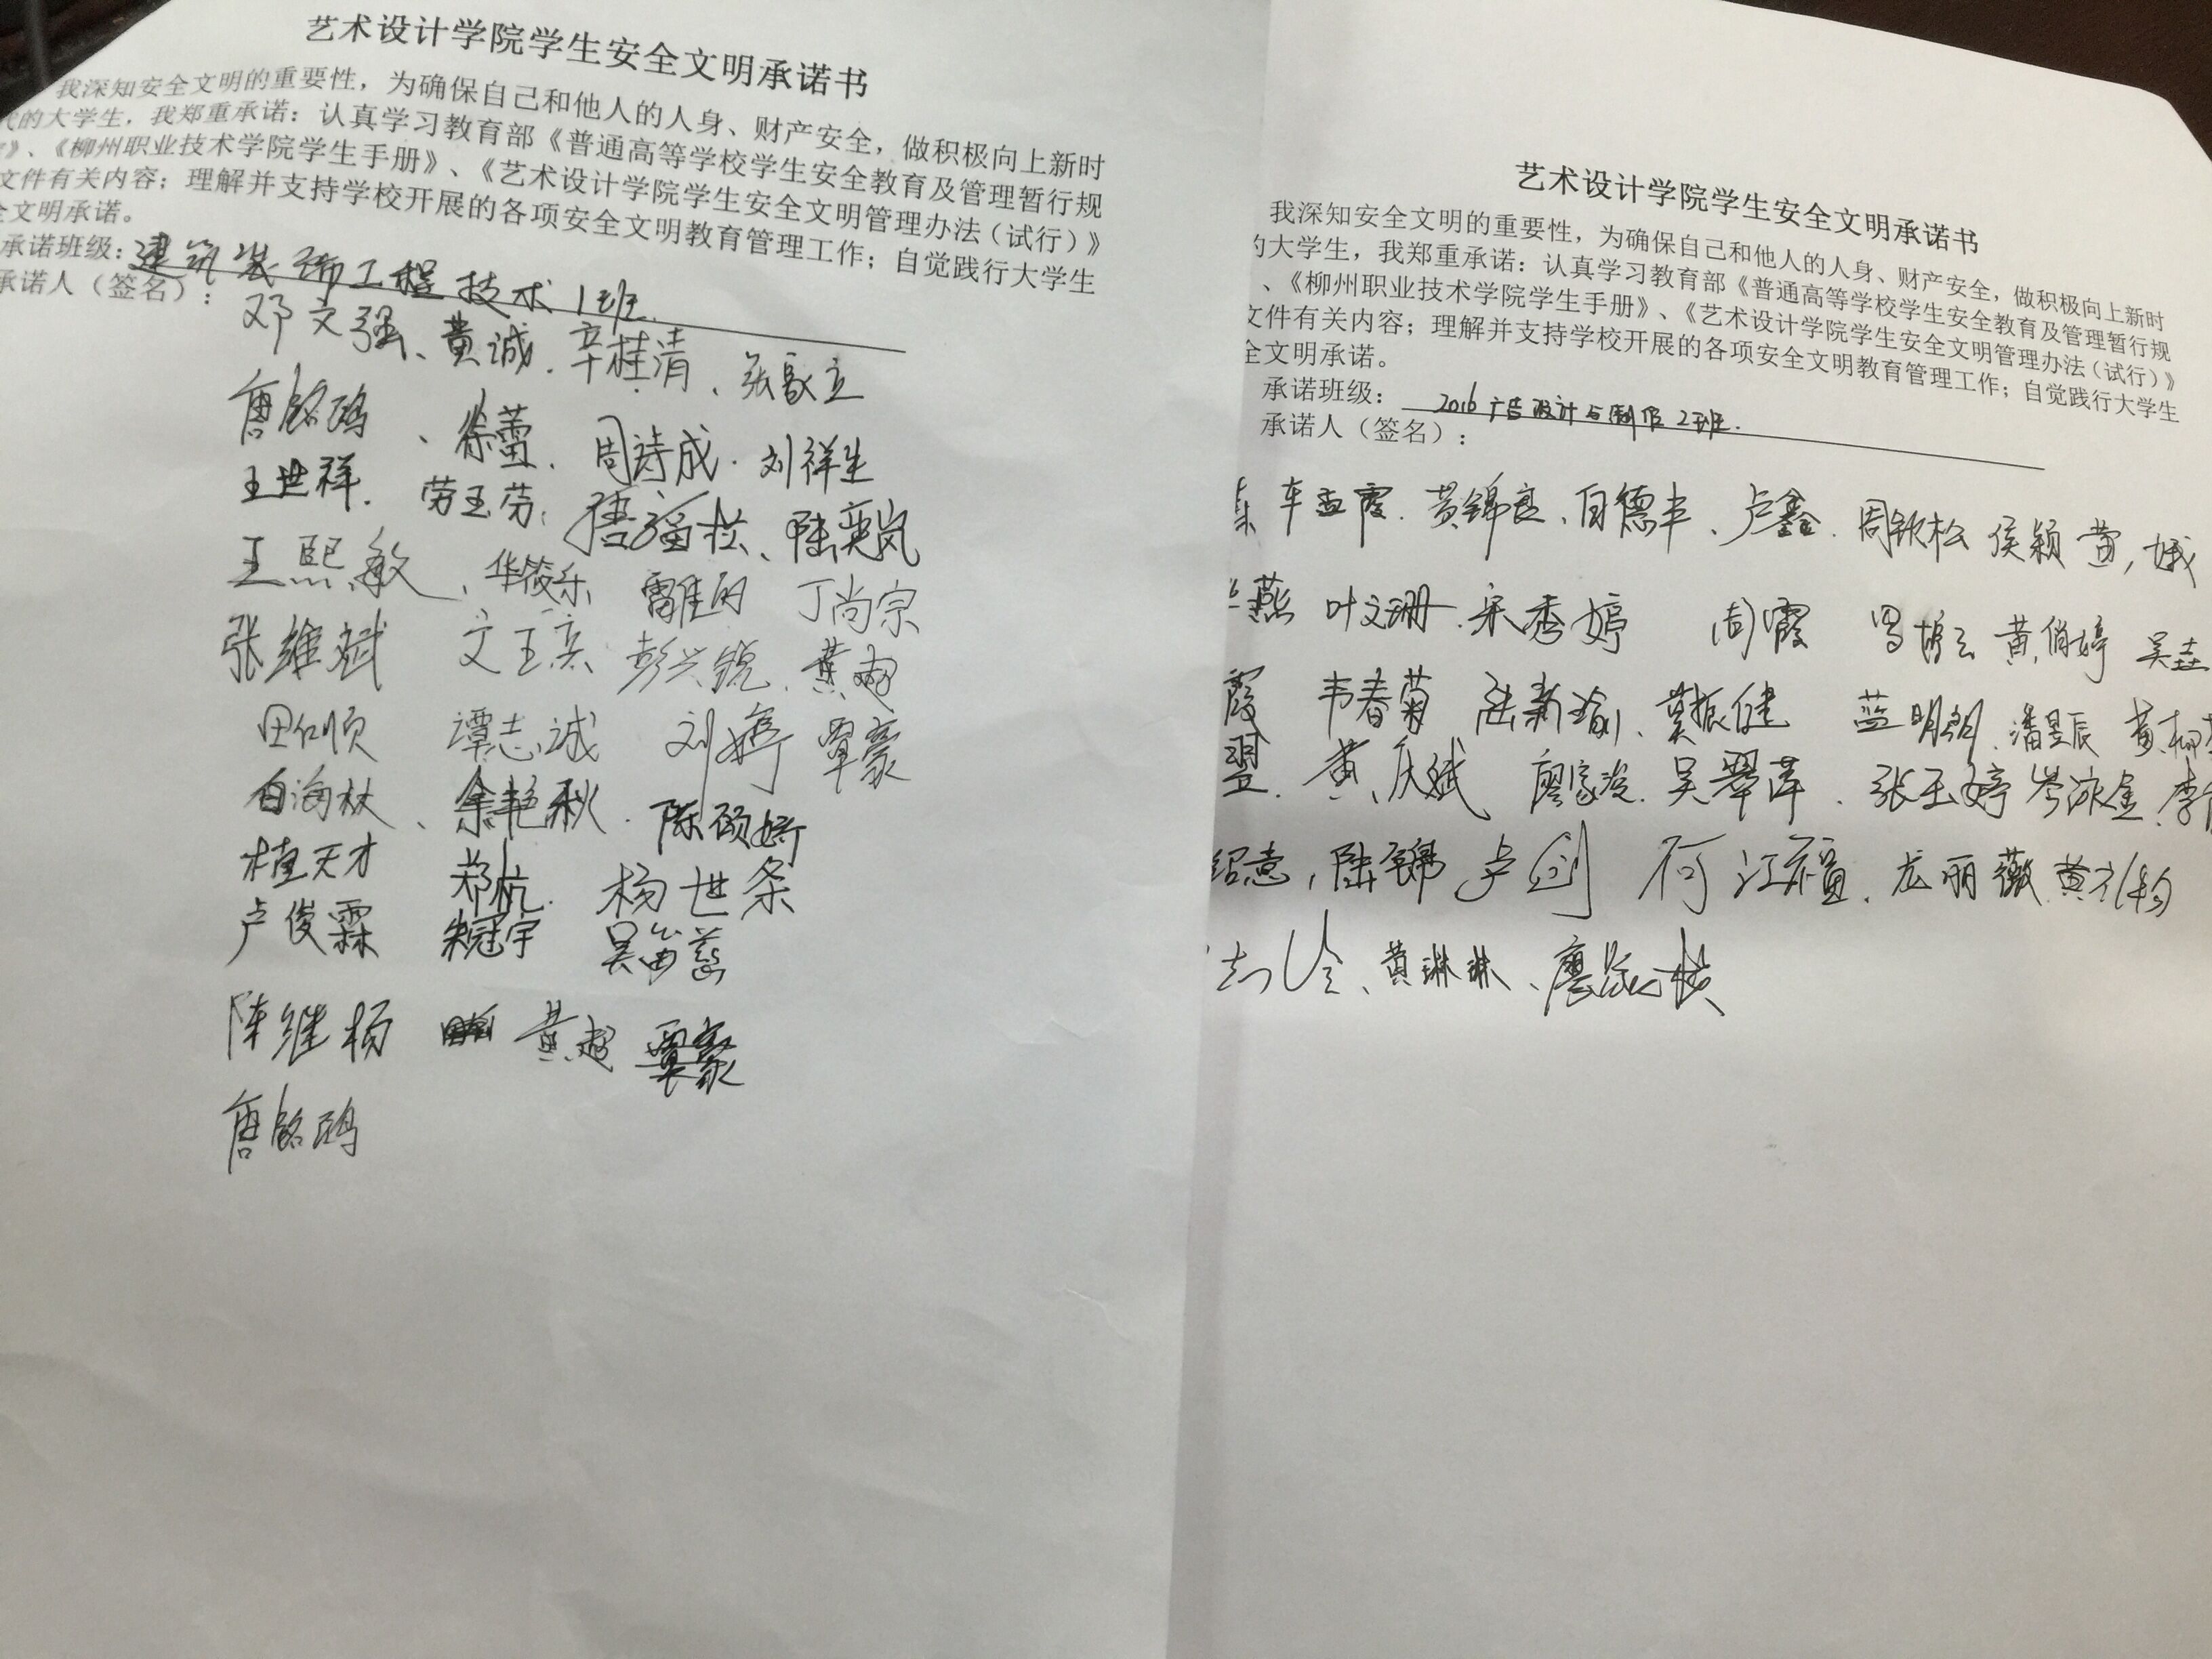 艺术设计学院学生安全文明承诺书
我深知安全文明的重要性，为确保自己和他人的人身、财产安全，做积极向上新时
代的大学生，我郑重承诺：认真学习教育部《普通高等学校学生安全教育及管理暂行规
》、《柳州职业技术学院学生手册》、《艺术设计学院学生安全文明管理办法（试行）》
文件有关内容；理解并支持学校开展的各项安全文明教育管理工作；自觉践行大学生
全文明承诺。
承诺班级：建筑装饰工程技术1班.
承诺人（签名）：
邓文强、黄诚.辛桂清、张敬立
唐铭鸿、徐蕾.周诗成.刘祥生
王世祥.劳玉芬、陆奕岚
王熙敏、华筱乐 丁尚宗
张维斌 彭兴锐.黄超
田仁顺 谭志诚 刘婷 覃豪
白海林、余艳秋.陈硕娇
植天才 郑杭.杨世条
卢俊霖 朱冠宇 吴笛慈
陈继杨 黄超 覃豪
唐铭鸿
艺术设计学院学生安全文明承诺书
我深知安全文明的重要性，为确保自己和他人的人身、财产安全，做积极向上新时
的大学生，我郑重承诺：认真学习教育部《普通高等学校学生安全教育及管理暂行规
、《柳州职业技术学院学生手册》、《艺术设计学院学生安全文明管理办法（试行）》
文件有关内容；理解并支持学校开展的各项安全文明教育管理工作；自觉践行大学生
全文明承诺。
承诺班级：2016广告设计与制作2班.
承诺人（签名）：
车孟霞.黄锦良、自德丰、卢鑫.周钦松 侯颖 黄小娥
燕 叶文珊.宋秀婷 周霞 黄俏婷 吴垚
霞 韦春菊 陆新瑜、莫振健 蓝明朗.潘昱辰
翌.黄庆斌 吴翠萍、张玉婷 岑冰金.
绍意，陆锦 卢剑 何江福.龙丽薇
黄琳琳、